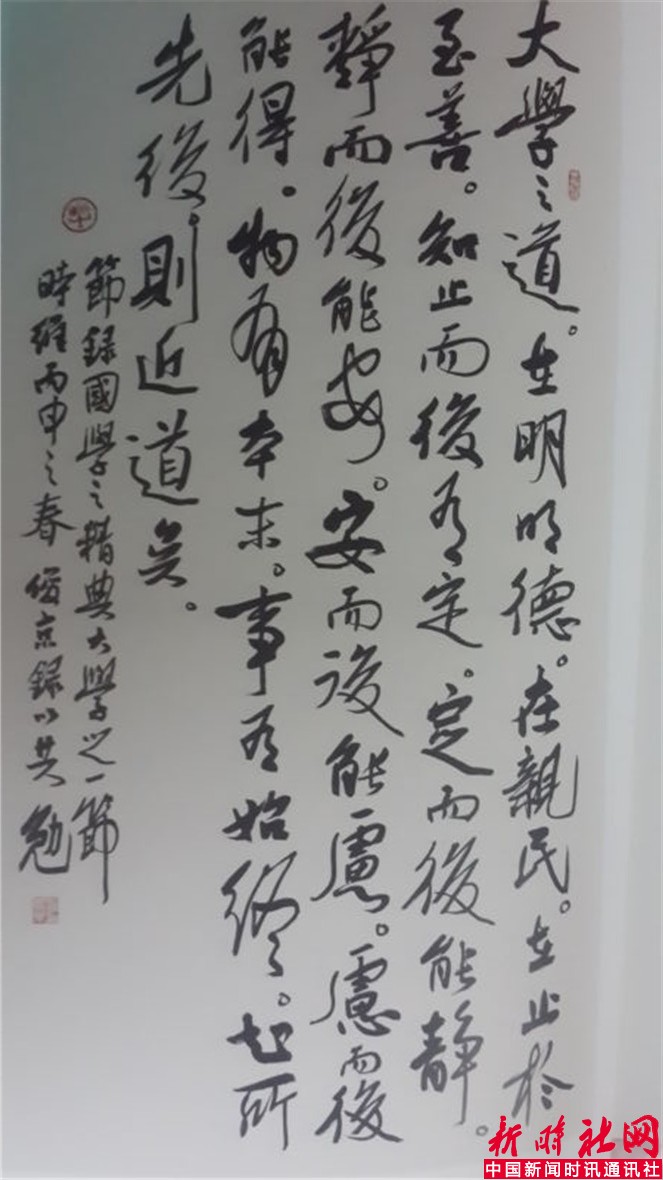 大學之道。在明明德。在親民。在止於
至善。知止而後有定。定而後能靜。
靜而後能安。安而後能慮。慮而後
能得。物有本末。事有始終。知所
先後。則近道矣。
節録國學之精典大學之一節
時維丙申之春 俊京録以共勉
新时社网
中国新闻时讯通讯社